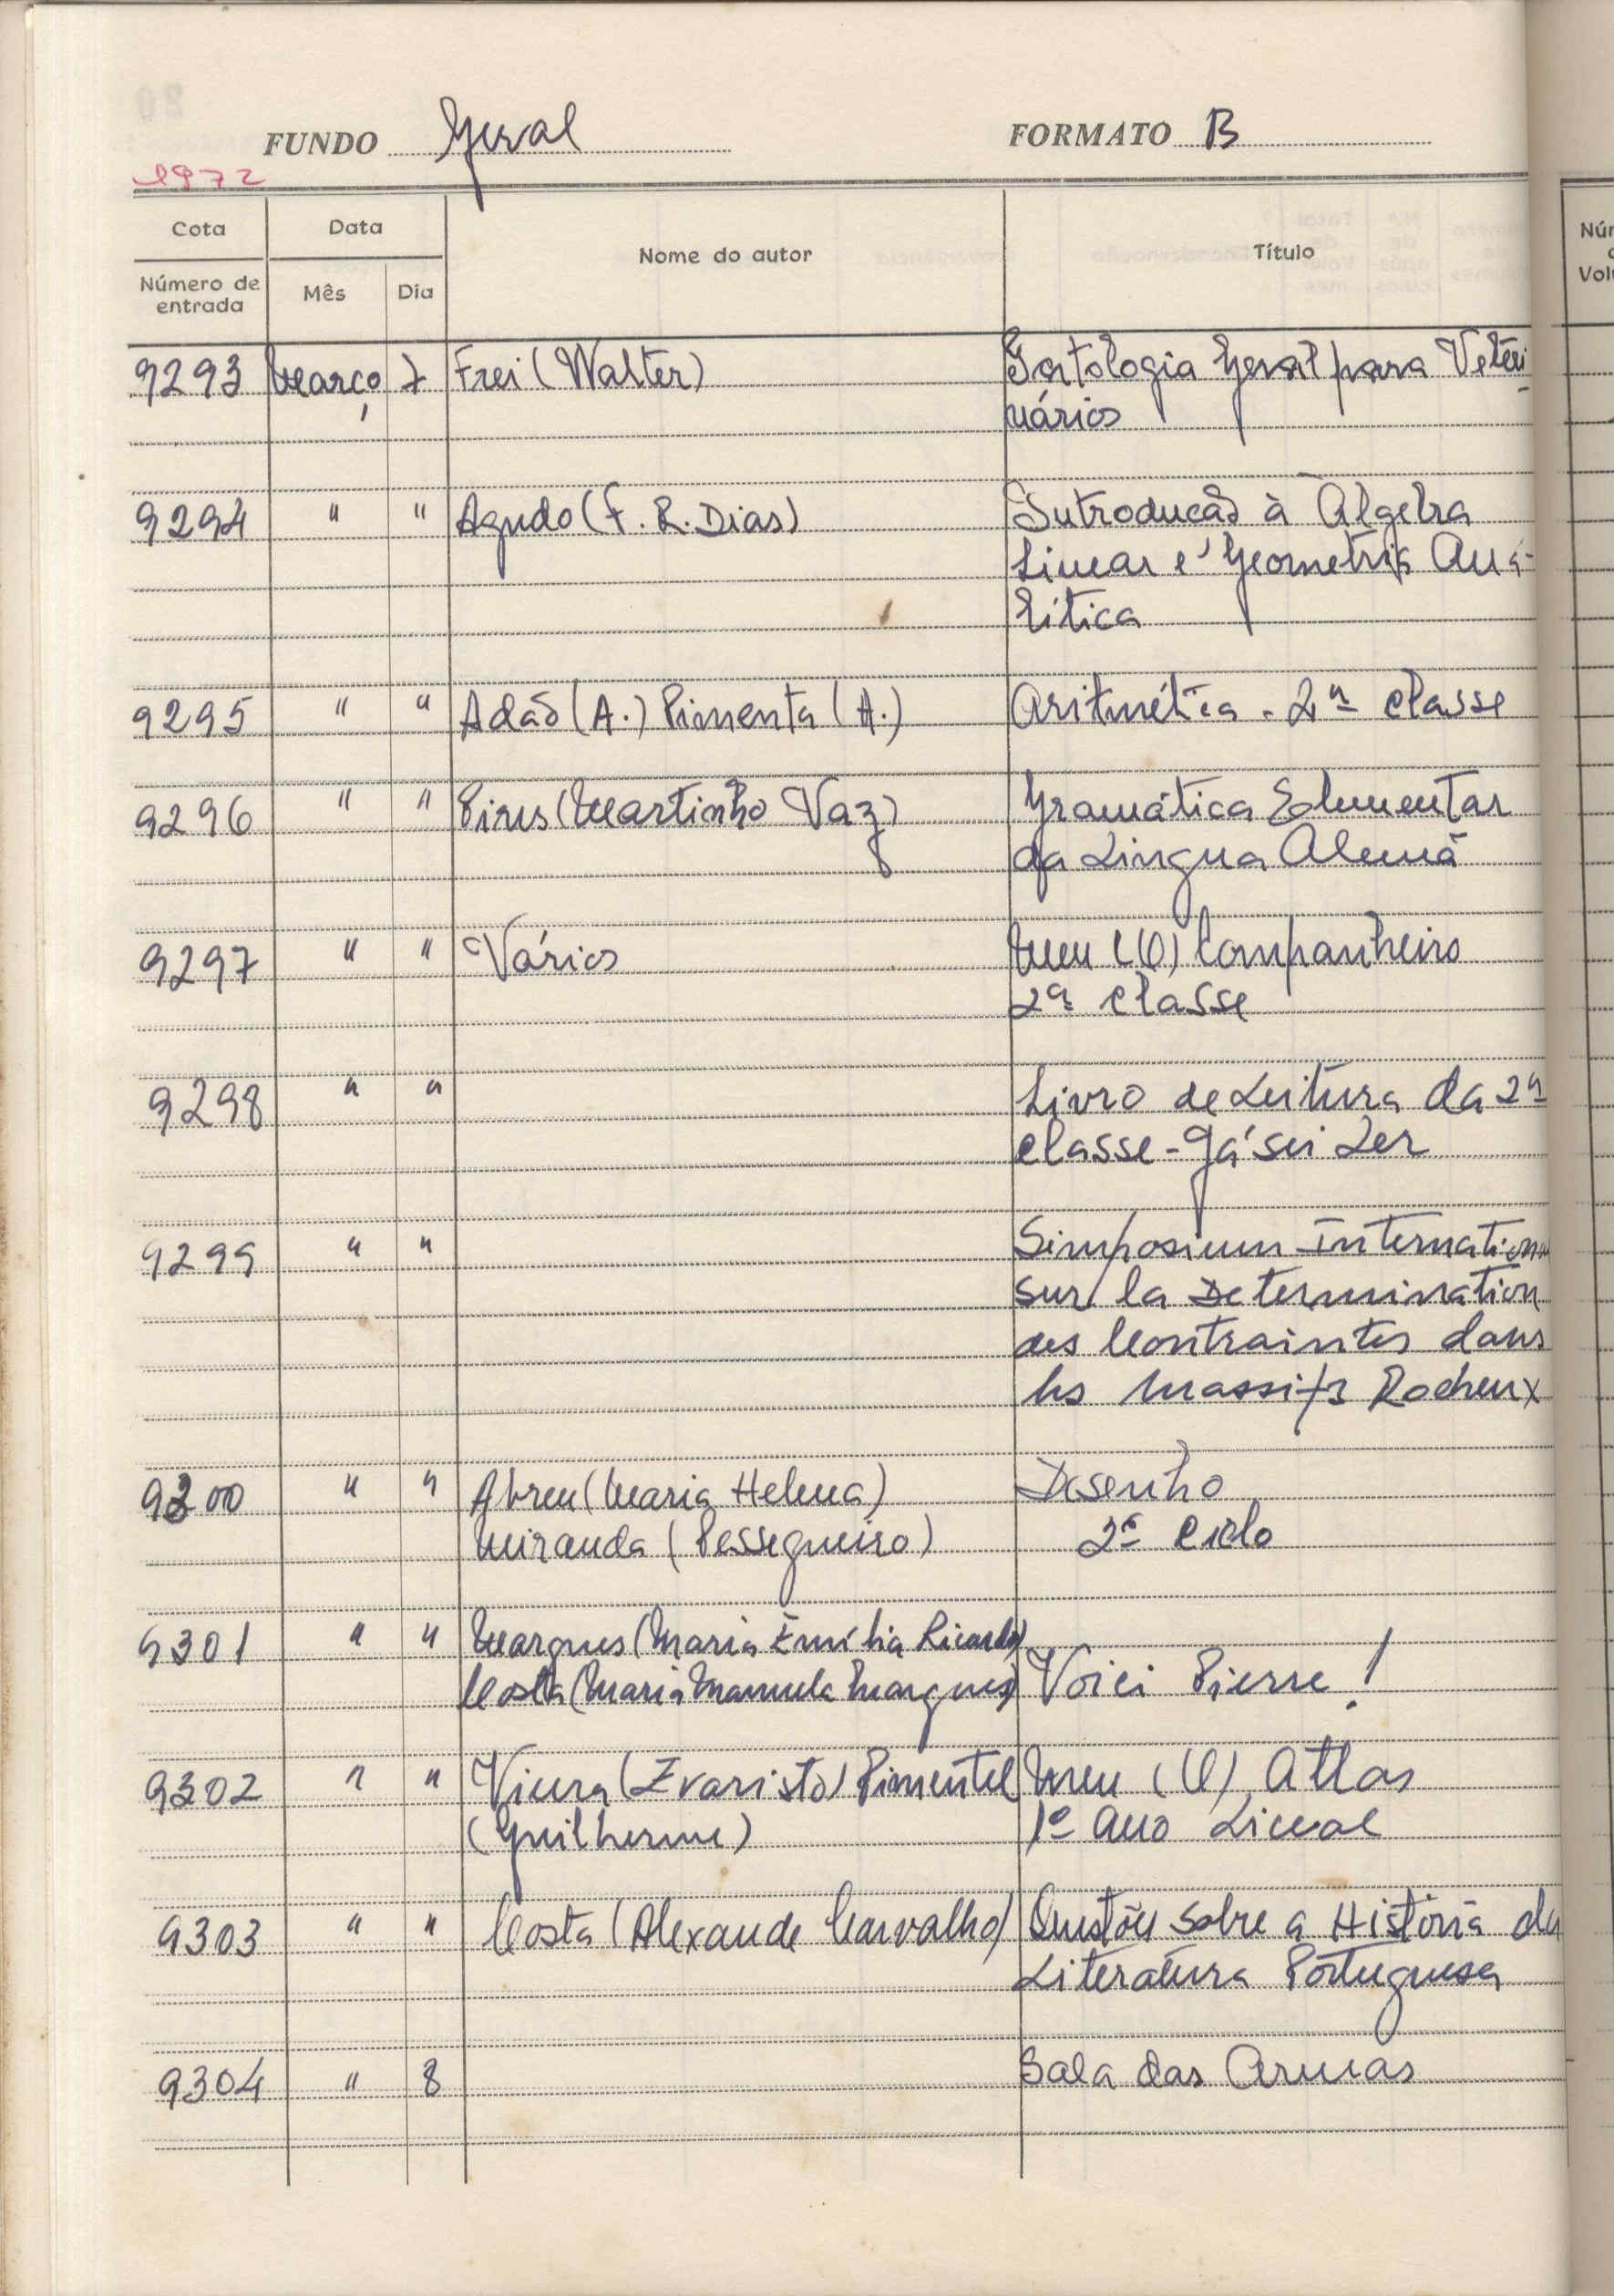 FUNDO Geral FORMATO B
1972
Cota Data Nome do autor Título
Número de entrada Mês Dia
9293 Março 7 Frei (Walter) Patologia Geral para Veteri-
nários
9294 " " Agudo (F. R. Dias) Introducão à Algebra
Linear e Geometria Aná-
lítica
9295 " " Adão (A.) Pimenta (A.) Aritmética - 2ª classe
9296 " " Pires (Martinho Vaz) Gramática Elementar
da Lingua Alemã
9297 " " Vários Meu (O) Companheiro
2ª classe
9298 " " Livro de Leitura da 2ª
classe - Já sei Ler
9299 " " Simposium International
sur la Determination
des Contraintes dans
les Massifs Rocheux
9300 " " Abreu (Maria Helena) Desenho
Miranda (Pessegueiro) 2º Ciclo
9301 " " Marques (Maria Emília Ricardo)
Costa (Maria Manuela Marques) Voici Pierre!
9302 " " Vieira (Evaristo) Pimentel Meu (O) Atlas
(Guilherme) 1º Ano Liceal
9303 " " Costa (Alexande Carvalho) Questões sobre a História da
Literatura Portuguesa
9304 " 8 Sala das Armas